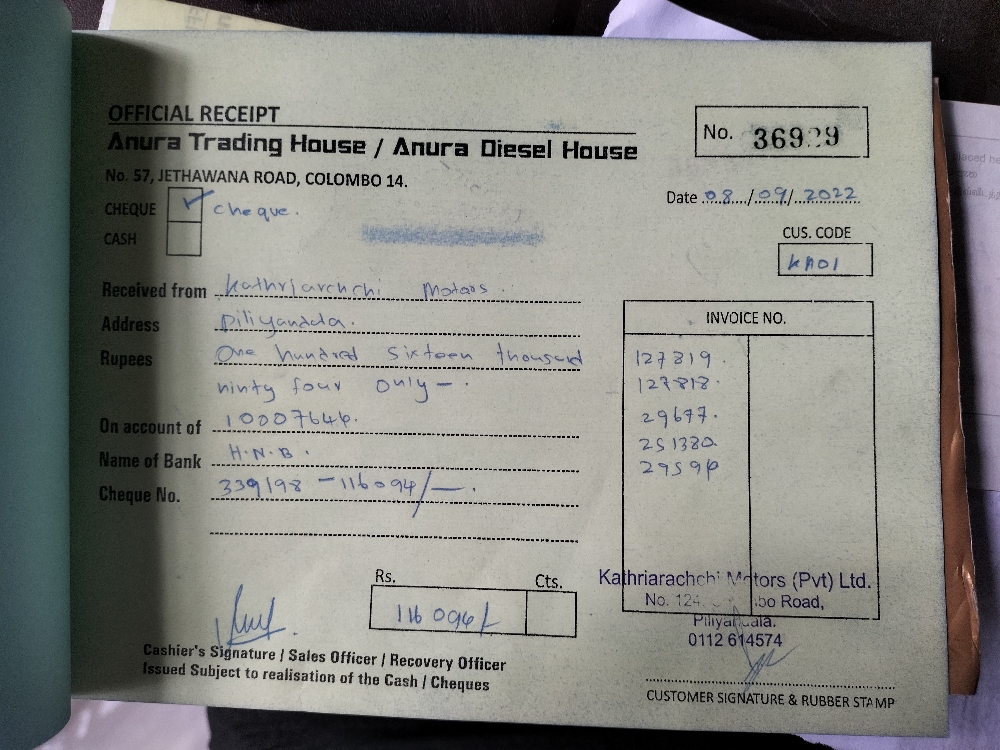 OFFICIAL RECEIPT
Anura Trading House / Anura Diesel House
No. 57, JETHAWANA ROAD, COLOMBO 14.
No. 36929
Date 08/09/2022
CHEQUE ✓ cheque.
CASH
CUS. CODE
KA01
Received from Kathriarchchi Motors.
Address Piliyandala.
Rupees One hundred Sixteen thousand
ninty four only -.
On account of 10007646.
Name of Bank H.N.B.
Cheque No. 339198 - 116094/-.
INVOICE NO.
127819.
127818.
29677.
251380
Rs. Cts.
116 094/
Kathriarachchi Motors (Pvt) Ltd.
No. 124, Road,
Piliyandala.
0112 614574
Cashier's Signature / Sales Officer / Recovery Officer
Issued Subject to realisation of the Cash / Cheques
CUSTOMER SIGNATURE & RUBBER STAMP